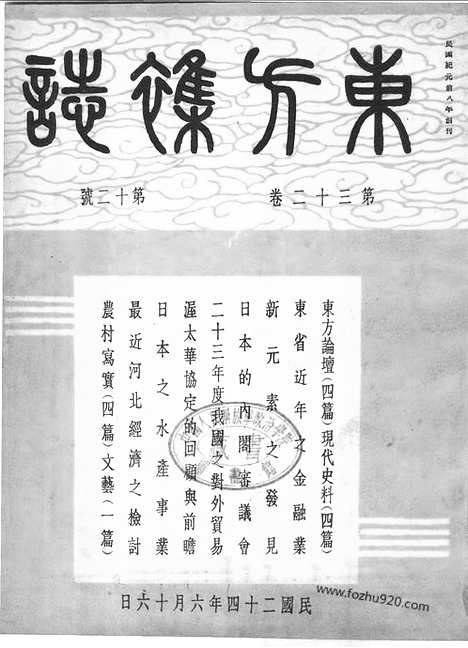 民國紀元前八年創刊
東方雜誌
第三十二卷 第十二號
東方論壇(四篇)現代史料(四篇)
東省近年之金融業
新元素之發見
日本的內閣審議會
二十三年度我國之對外貿易
渥太華協定的回顧與前瞻
日本之水產事業
最近河北經濟之檢討
農村寫實(四篇)文藝(一篇)
民國二十四年六月十六日
www.fozhu920.com